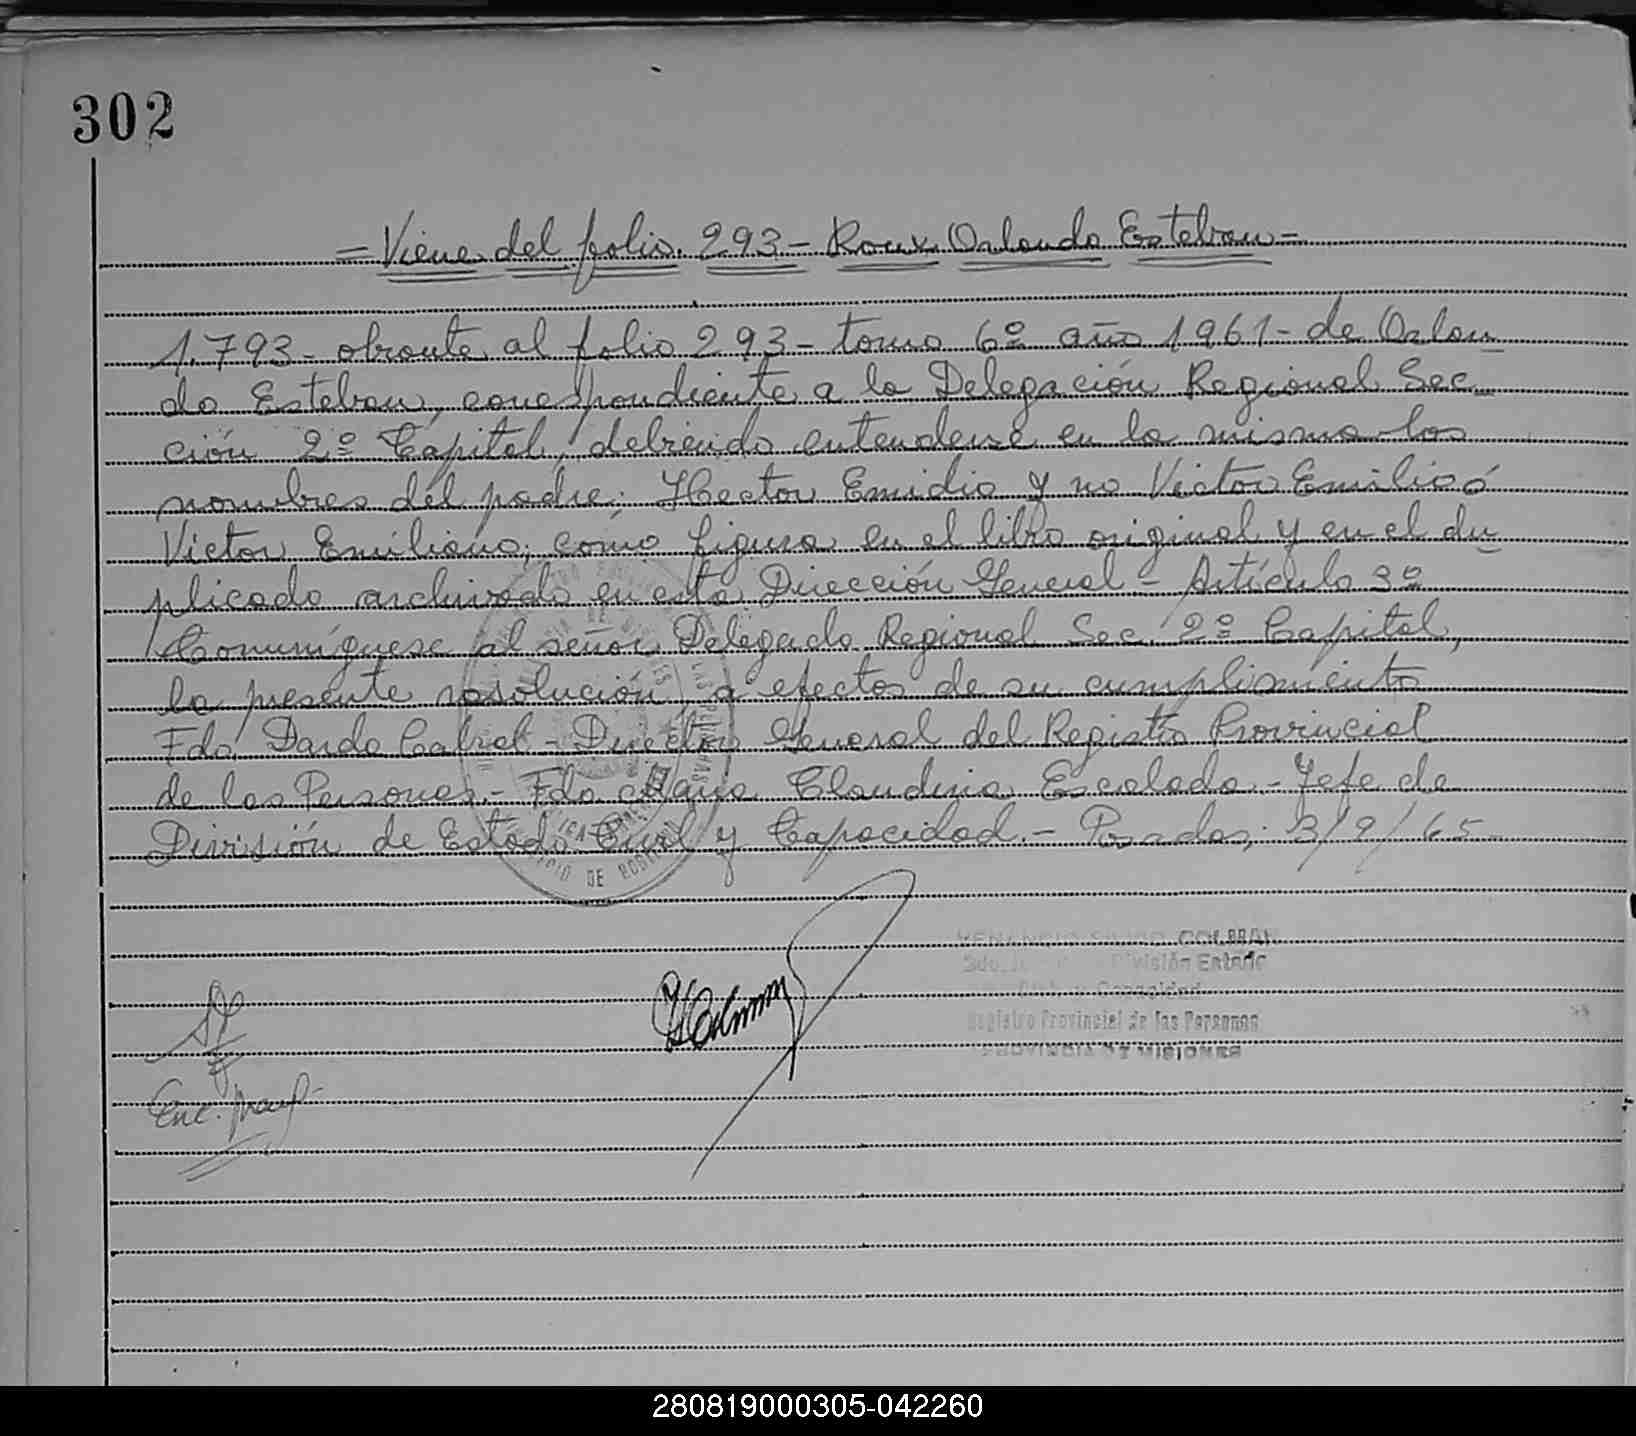 302
= Viene del folio. 293 - Roux Orlando Esteban =
1.793 - obrante al folio 293 - tomo 6º año 1961 - de Orlan
do Esteban, correspondiente a la Delegación Regional Sec
ción 2º Capital, debiendo entenderse en la misma los
nombres del padre: Hector Emidio y no Victor Emilio ó
Victor Emiliano, como figura en el libro original y en el du
plicado archivado en esta Dirección General - Artículo 3º
Comuníquese al señor Delegado Regional Sec. 2º Capital,
la presente resolución, a efectos de su cumplimiento
Fdo. Dardo Cabral - Director General del Registro Provincial
de las Personas.- Fdo. Claudina Escalada - Jefe de
División de Estado Civil y Capacidad. - Posadas, 3/9/65
COLMAN
División Estado
Capacidad
Registro Provincial de las Personas
PROVINCIA DE MISIONES
Enc.
280819000305-042260